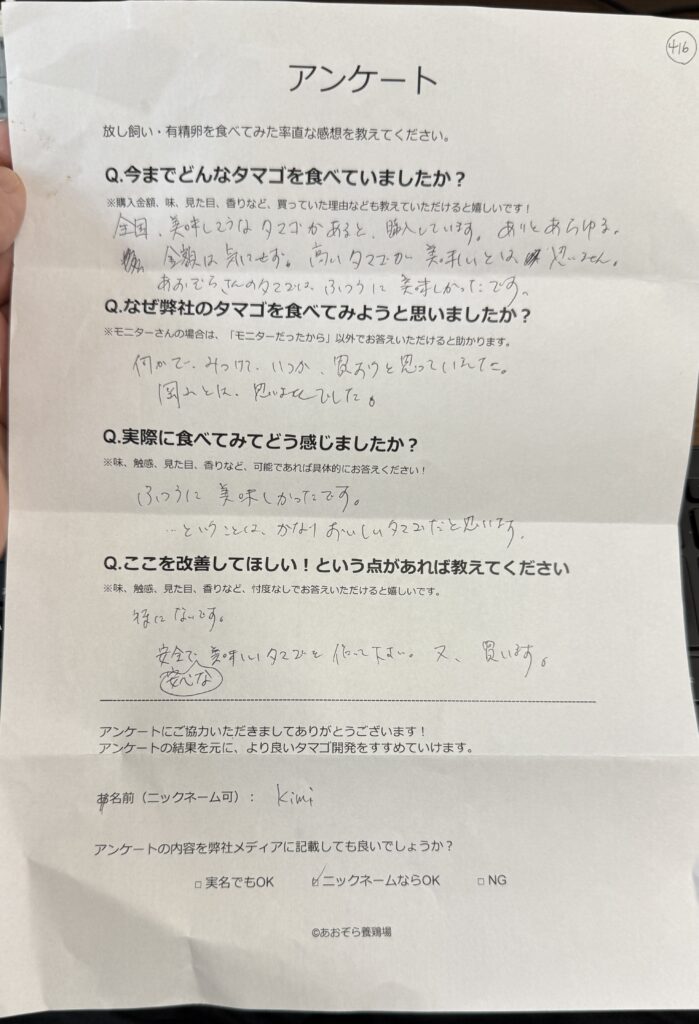 416
アンケート
放し飼い・有精卵を食べてみた率直な感想を教えてください。
Q.今までどんなタマゴを食べていましたか？
※購入金額、味、見た目、香りなど、買っていた理由なども教えていただけると嬉しいです！
全国、美味しそうなタマゴがあると、購入しています。ありとあらゆる。
金額は気にせず。高いタマゴが美味しいとは思いません。
あおぞらさんのタマゴは、ふつうに美味しかったです。
Q.なぜ弊社のタマゴを食べてみようと思いましたか？
※モニターさんの場合は、「モニターだったから」以外でお答えいただけると助かります。
何かで、みつけて、いつか、買おうと思っていました。
思いませんでした。
Q.実際に食べてみてどう感じましたか？
※味、触感、見た目、香りなど、可能であれば具体的にお答えください！
ふつうに美味しかったです。
…ということは、かなりおいしいタマゴだと思います。
Q.ここを改善してほしい！という点があれば教えてください
※味、触感、見た目、香りなど、忖度なしでお答えいただけると嬉しいです。
特にないです。
安全で、美味しいタマゴを作って下さい。又、買います。
安心な
アンケートにご協力いただきましてありがとうございます！
アンケートの結果を元に、より良いタマゴ開発をすすめていけます。
名前（ニックネーム可）： kimi
アンケートの内容を弊社メディアに記載しても良いでしょうか？
□ 実名でもOK ☑ ニックネームならOK □ NG
©あおぞら養鶏場